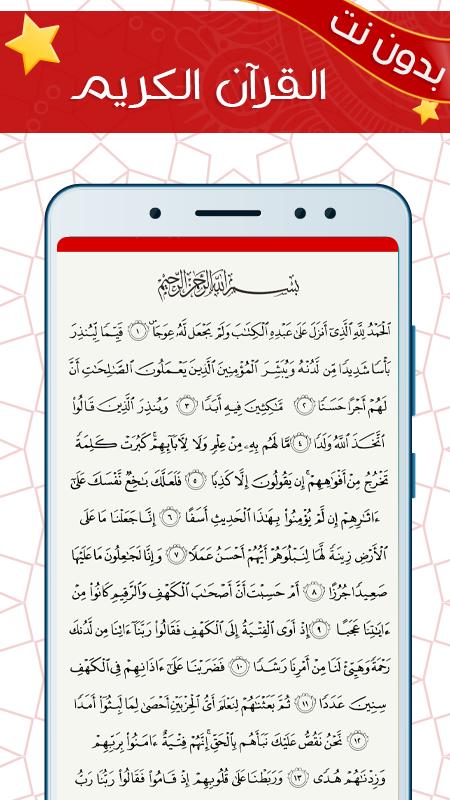 بدون نت
القرآن الكريم
بِسْمِ اللَّهِ الرَّحْمَٰنِ الرَّحِيمِ
الْحَمْدُ لِلَّهِ الَّذِي أَنزَلَ عَلَىٰ عَبْدِهِ الْكِتَابَ وَلَمْ يَجْعَل لَّهُ عِوَجًا ١ قَيِّمًا لِّيُنذِرَ
بَأْسًا شَدِيدًا مِّن لَّدُنْهُ وَيُبَشِّرَ الْمُؤْمِنِينَ الَّذِينَ يَعْمَلُونَ الصَّالِحَاتِ أَنَّ
لَهُمْ أَجْرًا حَسَنًا ٢ مَّاكِثِينَ فِيهِ أَبَدًا ٣ وَيُنذِرَ الَّذِينَ قَالُوا
اتَّخَذَ اللَّهُ وَلَدًا ٤ مَّا لَهُم بِهِ مِنْ عِلْمٍ وَلَا لِآبَائِهِمْ كَبُرَتْ كَلِمَةً
تَخْرُجُ مِنْ أَفْوَاهِهِمْ إِن يَقُولُونَ إِلَّا كَذِبًا ٥ فَلَعَلَّكَ بَاخِعٌ نَّفْسَكَ عَلَىٰ
ءَاثَارِهِمْ إِن لَّمْ يُؤْمِنُوا بِهَٰذَا الْحَدِيثِ أَسَفًا ٦ إِنَّا جَعَلْنَا مَا عَلَى
الْأَرْضِ زِينَةً لَّهَا لِنَبْلُوَهُمْ أَيُّهُمْ أَحْسَنُ عَمَلًا ٧ وَإِنَّا لَجَاعِلُونَ مَا عَلَيْهَا
صَعِيدًا جُرُزًا ٨ أَمْ حَسِبْتَ أَنَّ أَصْحَابَ الْكَهْفِ وَالرَّقِيمِ كَانُوا مِنْ
ءَايَاتِنَا عَجَبًا ٩ إِذْ أَوَى الْفِتْيَةُ إِلَى الْكَهْفِ فَقَالُوا رَبَّنَا ءَاتِنَا مِن لَّدُنكَ
رَحْمَةً وَهَيِّئْ لَنَا مِنْ أَمْرِنَا رَشَدًا ١٠ فَضَرَبْنَا عَلَىٰ ءَاذَانِهِمْ فِي الْكَهْفِ
سِنِينَ عَدَدًا ١١ ثُمَّ بَعَثْنَاهُمْ لِنَعْلَمَ أَيُّ الْحِزْبَيْنِ أَحْصَىٰ لِمَا لَبِثُوا أَمَدًا
١٢ نَّحْنُ نَقُصُّ عَلَيْكَ نَبَأَهُم بِالْحَقِّ إِنَّهُمْ فِتْيَةٌ ءَامَنُوا بِرَبِّهِمْ
وَزِدْنَاهُمْ هُدًى ١٣ وَرَبَطْنَا عَلَىٰ قُلُوبِهِمْ إِذْ قَامُوا فَقَالُوا رَبُّنَا رَبُّ